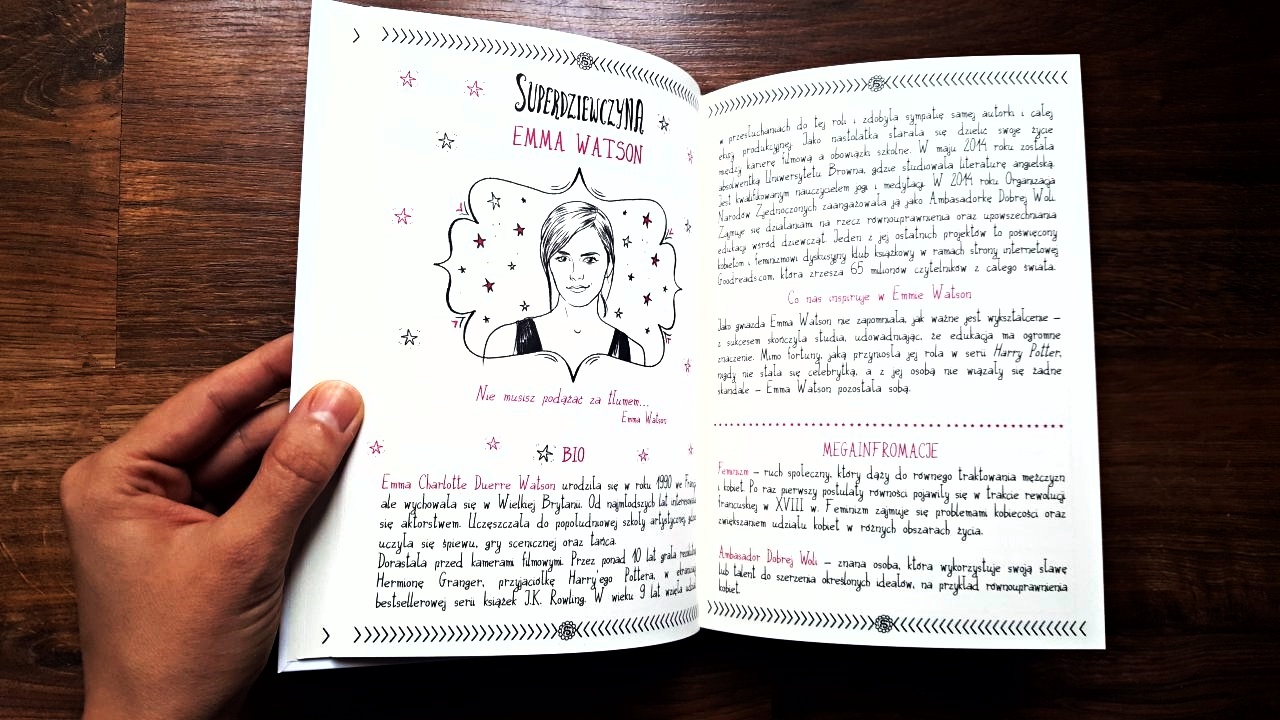 SUPERDZIEWCZYNA
EMMA WATSON
Nie musisz podążać za tłumem...
Emma Watson
BIO
Emma Charlotte Duerre Watson urodziła się w roku 1990 we
ale wychowała się w Wielkiej Brytanii. Od najmłodszych lat
się aktorstwem. Uczęszczała do popołudniowej szkoły artystycznej,
uczyła się śpiewu, gry scenicznej oraz tańca.
Dorastała przed kamerami filmowymi. Przez ponad 10 lat grała
Hermionę Granger, przyjaciółkę Harry'ego Pottera, w
bestsellerowej serii książek J.K. Rowling. W wieku 9 lat wzięła
w przesłuchaniach do tej roli i zdobyła sympatię samej autorki i całej
ekipy produkcyjnej. Jako nastolatka starała się dzielić swoje życie
między karierę filmową a obowiązki szkolne. W maju 2014 roku została
absolwentką Uniwersytetu Browna, gdzie studiowała literaturę angielską.
Jest kwalifikowanym nauczycielem jogi i medytacji. W 2014 roku Organizacja
Narodów Zjednoczonych zaangażowała ją jako Ambasadorkę Dobrej Woli.
Zajmuje się działaniami na rzecz równouprawnienia oraz upowszechniania
edukacji wśród dziewcząt. Jeden z jej ostatnich projektów to poświęcony
kobietom i feminizmowi dyskusyjny klub książkowy w ramach strony internetowej
Goodreads.com, która zrzesza 65 milionów czytelników z całego świata.
Co nas inspiruje w Emmie Watson
Jako gwiazda Emma Watson nie zapomniała, jak ważne jest wykształcenie –
z sukcesem skończyła studia, udowadniając, że edukacja ma ogromne
znaczenie. Mimo fortuny, jaką przyniosła jej rola w serii Harry Potter,
nigdy nie stała się celebrytką, a z jej osobą nie wiązały się żadne
skandale – Emma Watson pozostała sobą.
MEGAINFROMACJE
Feminizm – ruch społeczny, który dąży do równego traktowania mężczyzn
i kobiet. Po raz pierwszy postulaty równości pojawiły się w trakcie rewolucji
francuskiej w XVIII w. Feminizm zajmuje się problemami kobiecości oraz
zwiększaniem udziału kobiet w różnych obszarach życia.
Ambasador Dobrej Woli – znana osoba, która wykorzystuje swoją sławę
lub talent do szerzenia określonych ideałów, na przykład równouprawnienia
kobiet.